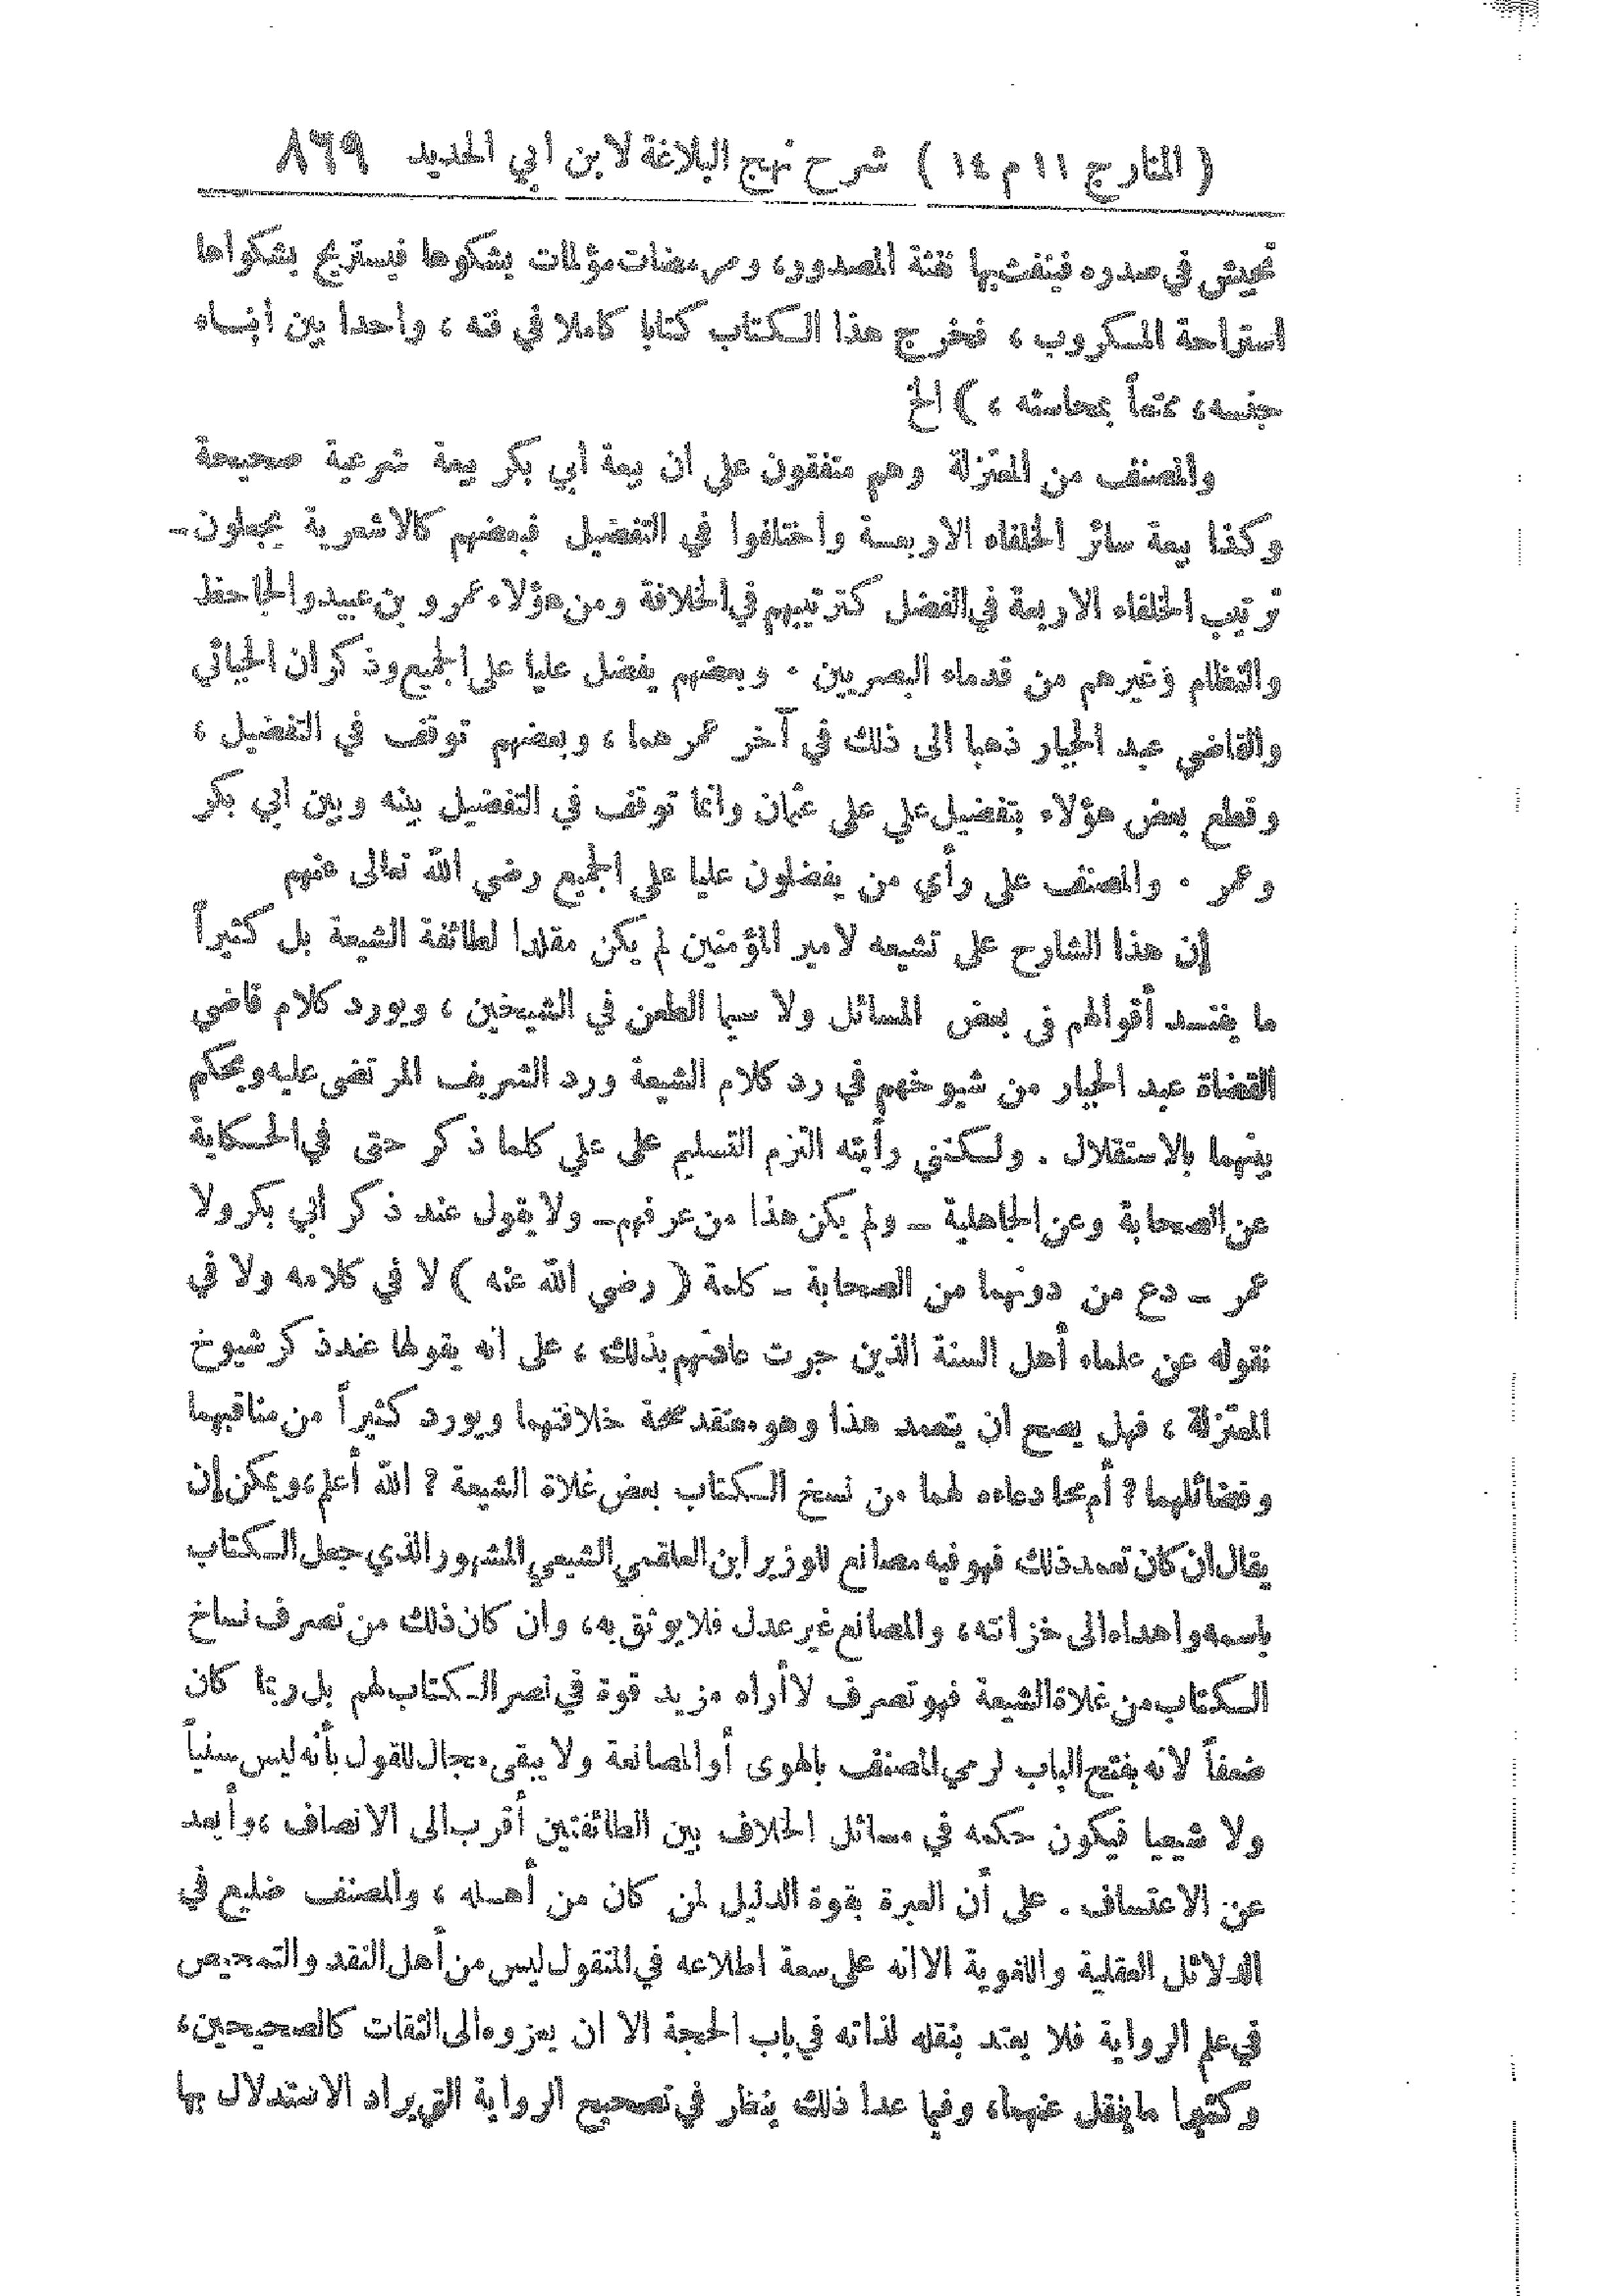 ( المنار ج ١١ م ١٤ ) شرح نهج البلاغة لابن ابي الحديد ٨٦٩
تجيش في صدره فينفث بها نفثة المصدور، ومرمضات مؤلمات يشكوها فيستريح بشكواها
استراحة المكروب ، فخرج هذا الكتاب كتابا كاملا في فنه ، واحدا بين أبناء
جنسه، ممتعاً بمحاسنه ، ) الخ
والمصنف من المعتزلة وهم متفقون على ان بيعة أبي بكر بيعة شرعية صحيحة
وكذا بيعة سائر الخلفاء الاربعة واختلفوا في التفضيل فبعضهم كالاشعرية يجعلون
ترتيب الخلفاء الاربعة في الفضل كترتيبهم في الخلافة ومن هؤلاء عمرو بن عبيد والجاحظ
والنظام وغيرهم من قدماء البصريين ٠ وبعضهم يفضل عليا على الجميع وذكر ان الجبائي
والقاضي عبد الجبار ذهبا الى ذلك في آخر عمرهما ، وبعضهم توقف في التفضيل ،
وقطع بعض هؤلاء بتفضيل علي على عثمان وانما توقف في التفضيل بينه وبين ابي بكر
وعمر ٠ والمصنف على رأي من يفضلون عليا على الجميع رضي الله تعالى عنهم
إن هذا الشارح على تشيعه لامير المؤمنين لم يكن مقلدا لطائفة الشيعة بل كثيراً
ما يفند أقوالهم في بعض المسائل ولا سيما الطعن في الشيخين ، ويورد كلام قاضي
القضاة عبد الجبار من شيوخهم في رد كلام الشيعة ورد الشريف المرتضى عليه ويحكم
بينهما بالاستقلال . ولكنني رأيته التزم التسليم على علي كلما ذكر حتى في الحكاية
عن الصحابة وعن الجاهلية ــ ولم يكن هذا من عرفهم ــ ولا يقول عند ذكر ابي بكر ولا
عمر ــ دع من دونهما من الصحابة ــ كلمة ( رضي الله عنه ) لا في كلامه ولا في
نقوله عن علماء أهل السنة الذين جرت عادتهم بذلك ، على انه يقولها عند ذكر شيوخ
المعتزلة ، فهل يصح ان يتعمد هذا وهو معتقد صحة خلافتهما ويورد كثيراً من مناقبهما
وفضائلهما ؟ أم محا دعاءه لهما من نسخ الكتاب بعض غلاة الشيعة ؟ الله أعلم، ويمكن إن
يقال ان كان تعمد ذلك فهو فيه مصانع للوزير ابن العلقمي الشيعي المشهور الذي جعل الكتاب
باسمه واهداه الى خزانته ، والمصانع غير عدل فلا يوثق به، وان كان ذلك من تصرف نساخ
الكتاب من غلاة الشيعة فهو تصرف لا أراه مزيد قوة في نصر الكتاب لهم بل ربما كان
ضعفاً لانه يفتح الباب لرمي المصنف بالهوى أو المصانعة ولا يبقى مجال للقول بأنه ليس سنياً
ولا شيعيا فيكون حكمه في مسائل الخلاف بين الطائفتين أقرب الى الانصاف ،وأبعد
عن الاعتساف . على أن العبرة بقوة الدليل لمن كان من أهله ، والمصنف ضليع في
الدلائل العقلية واللغوية الا انه على سعة اطلاعه في المنقول ليس من أهل النقد والتمحيص
في علم الرواية فلا يعتد بنقله لذاته في باب الحجة الا ان يعزوه الى الثقات كالصحيحين،
وكثيرا ما ينقل عنهما، وفيما عدا ذلك ينظر في تصحيح الرواية التي يراد الاستدلال بها